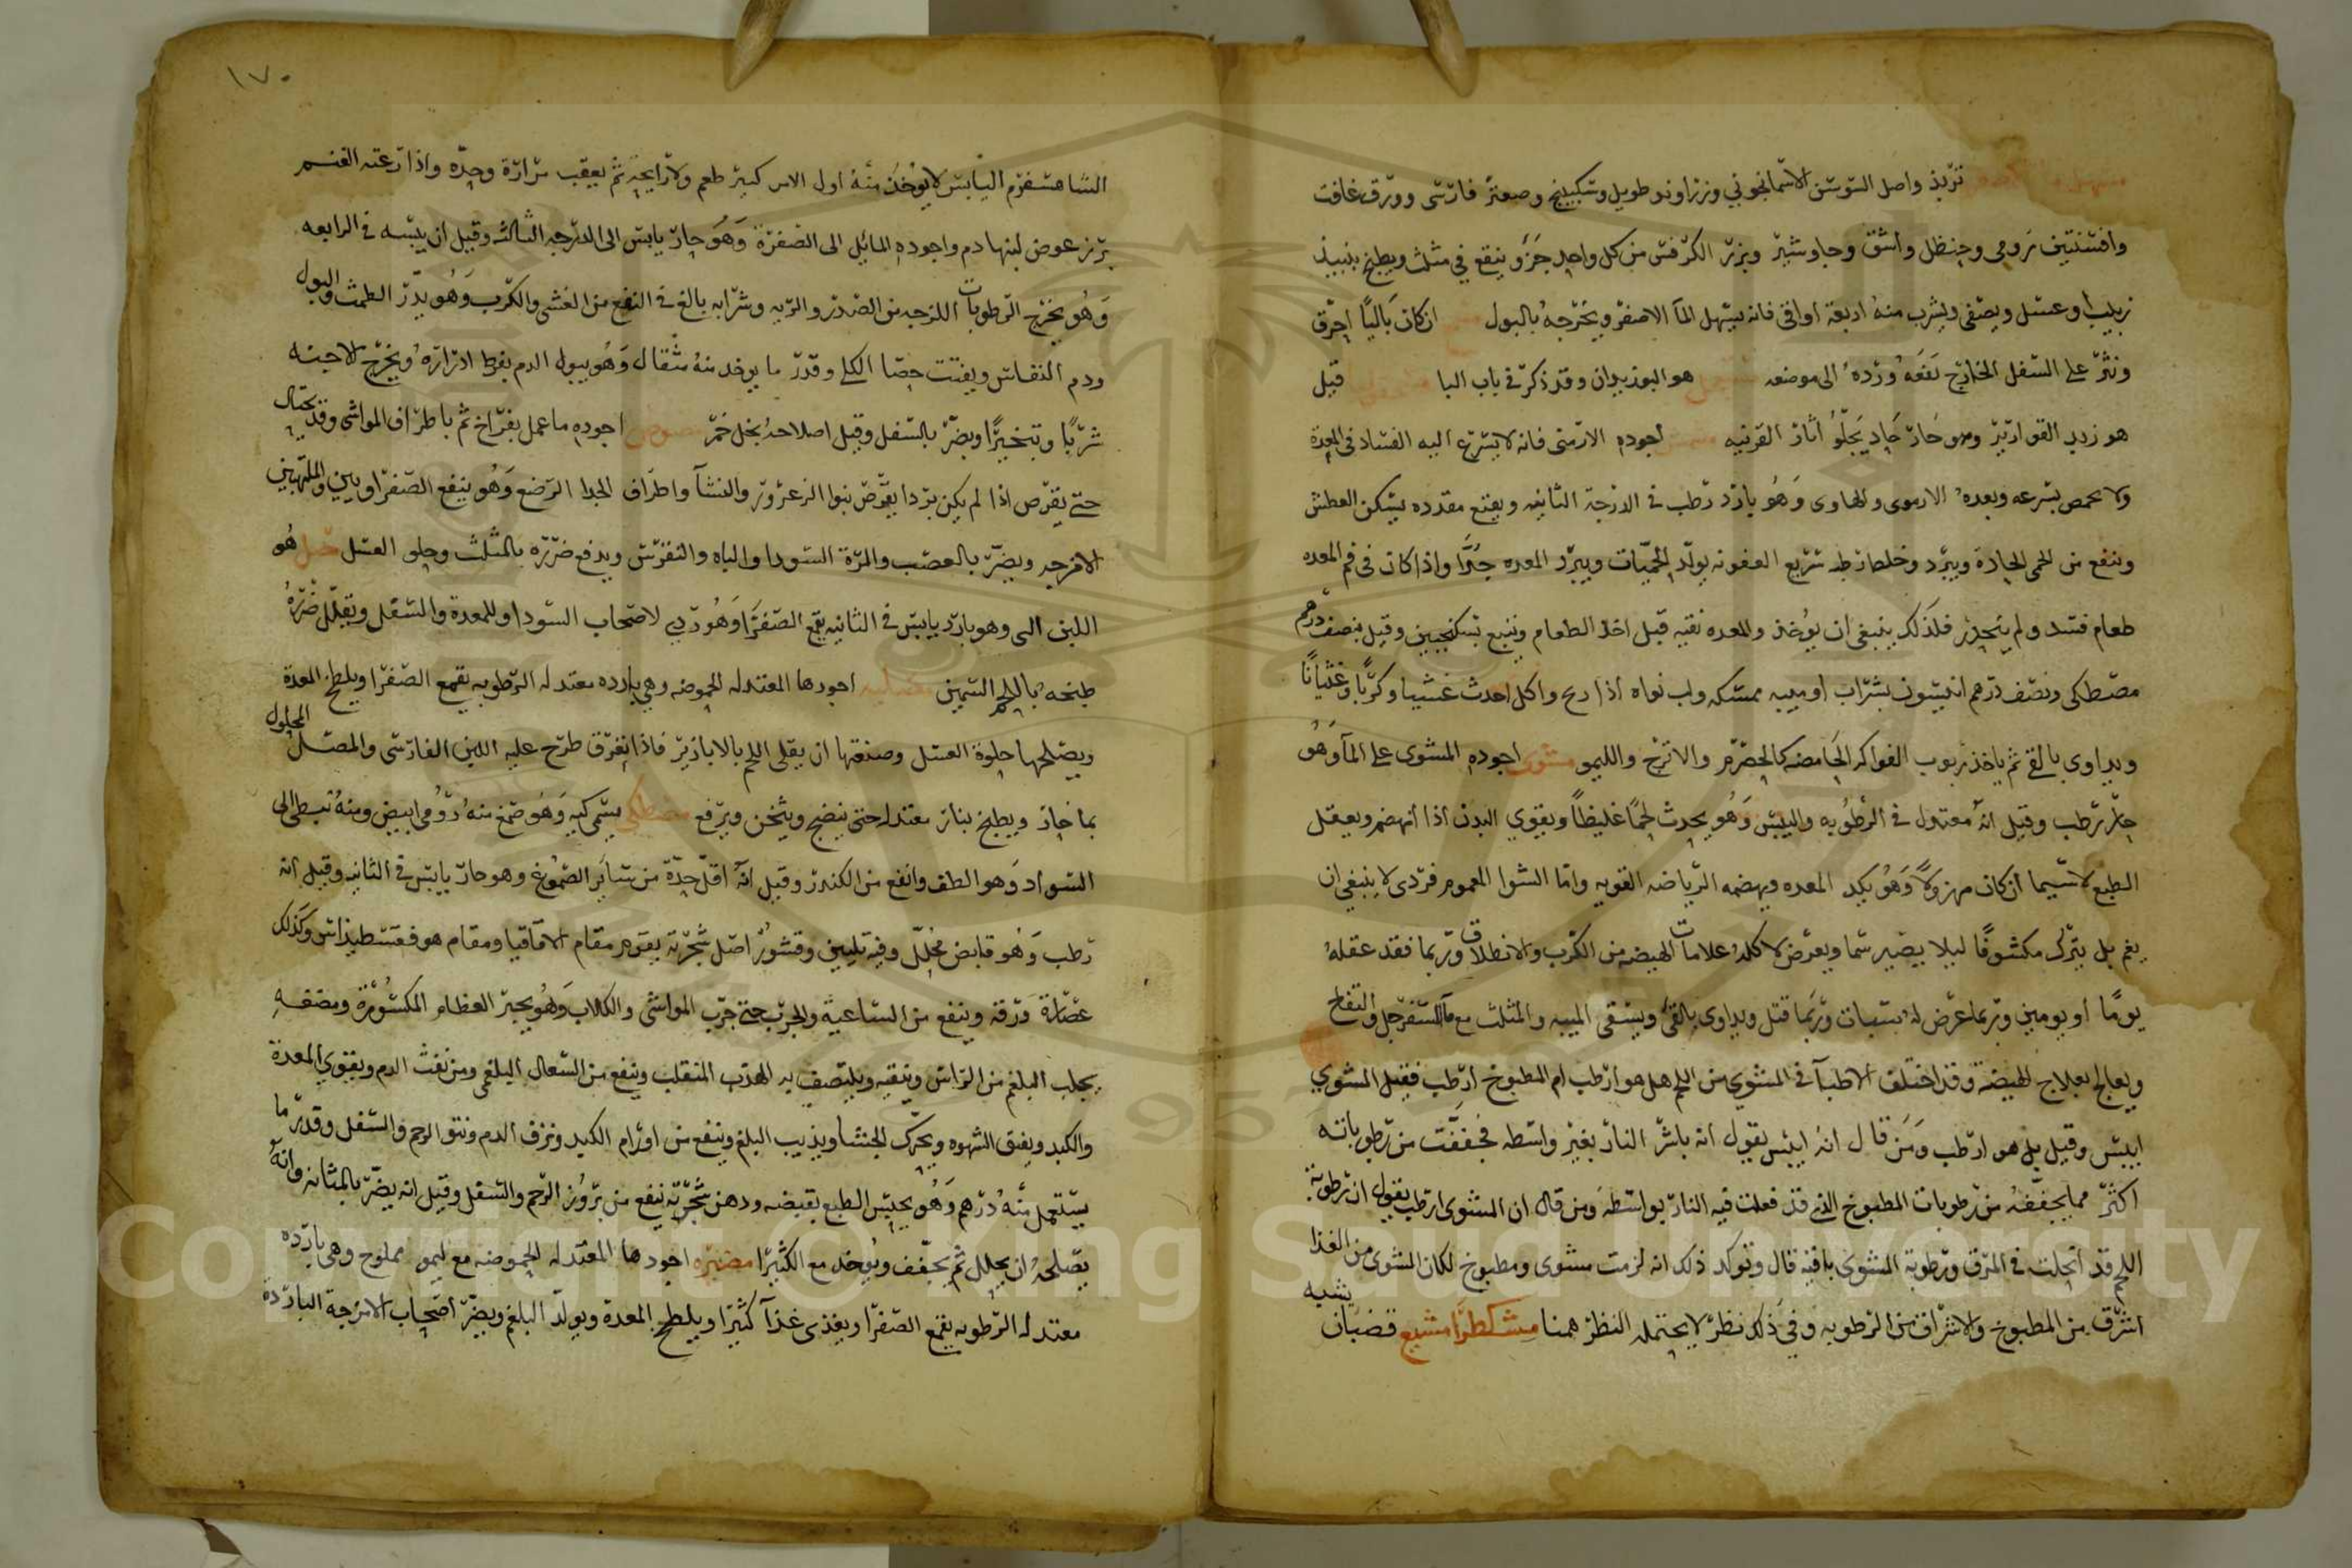 تربذ واصل السوسن الاسمانجوني وزراوند طويل وسكبينج وصعتر فارسى وورق غافت
وافسنتين رومى وحنظل واشق وجاوشير وبزر الكرفس من كل واحد جزو ينقع في مثلث ويطبخ بنبيذ
زبيب او عسل ويصفى ويشرب منه اربعة اواقى فانه يسهل المآ الاصفر ويخرجه بالبول ان كان باليًا احرق
ونثر على السفل الخارج نفعه ورده الى موضعه هو البوزيدان وقد ذكر في باب البا قيل
هو زبد القوارير وهو حار حاد يجلو اثار القرنيه مشمش اجوده الارمنى فانه لا يسرع اليه الفساد فى المعدة
ولا يحمص بسرعه وبعده الارموى والهاوى وهو بارد رطب فى الدرجة الثانيه ويقنع مقدده يسكن العطش
وينفع من الحمى الحادة ويبرد وخلطه رطب سريع العفونه يولد الحميّات ويبرد المعده جدًا واذا كان فى فم المعده
طعام فسد ولم ينحدر فلذلك ينبغى ان يوخذ والمعده نقيه قبل اخذ الطعام ويتبع بسكنجبين وقيل بنصف درهم
مصطكى ونصف درهم انيسون بشراب او ميبه ممسكه ولب نواه اذا واكل احدث غشيا وكربًا وغثيانًا
ويداوى بالقئ ثم ياخذ ربوب الفواكه الحامضه كالحصرم والاترج والليمو مشوى اجوده المشوى على المآ وهو
حار رطب وقيل انه معتدل فى الرطوبه واليبس وهو يحدث لحمًا غليظًا ويقوي البدن اذا انهضم ويعقل
الطبع لا سيما ان كان مهزولاً وهو يكد المعده ويهضمه الرياضه القويه وامّا الشوا المغموم فردى لا ينبغى ان
يغم بل يترك مكشوفًا ليلا يصير سما ويعرض لاكله علامات الهيضه من الكرب والانطلاق وربما فقد عقله
يومًا او يومين وربما عرض له سبات وربما قتل ويداوى بالقئ ويسقى الميبه والمثلث مع مآ السفرجل والتفاح
ويعالج بعلاج الهيضة وقد اختلف الاطبآ فى المشوي من اللحم هل هو ارطب ام المطبوخ ارطب فقيل المشوي
ايبس وقيل بل هو ارطب ومن قال انه ايبس يقول انه باشر النار بغير واسطه فجففت من رطوباته
اكثر مما يجففه من رطوبات المطبوخ الذى قد فعلت فيه النار بواسطه ومن قال ان المشوى ارطب يقول ان رطوبة
اللحم قد انحلت فى المرق ورطوبة المشوى باقيه قال وتوكد ذلك انه لزمت مشوى ومطبوخ لكان المشوى من الغذا
اشرق من المطبوخ والاشراق من الرطوبه وفي ذلك نظر لا يحتمله النظر همنا مشكطرامشيع قضبان
يشبه
١٧٠
الشاهسفرم اليابس لا يوخذ منه اول الامر كبير طعم ولا رايحة ثم يعقب مرارة وحده واذا رعته الغنم
برز عوض لبنها دم واجوده المائيل الى الصفرة وهو حار يابس الى الدرجه الثالثه وقيل ان يبسه فى الرابعه
وهو يخرج الرطوبات اللزجه من الصدر والريه وشرابه بالغ فى النفع من الغشى والكرب وهو يدر الطمث والبول
ودم النفاس ويفتت حصا الكلى وقدر ما يوخذ منه مثقال وهو يبول الدم بفرط ادراره ويخرج الاجنه
شربًا وتبخيرًا ويضر بالسفل وقيل اصلاحه بخل خمر مصوص اجوده ما عمل بفراخ ثم باطراف المواشى وقد يحتال
حتى يقرص اذا لم يكن بردا يعوض بنوا الزعرور والنشآ واطراف الجدا الرضع وهو ينفع الصفراويين والملتهبين
الامزجه ويضر بالعصب والمرة السودا والباه والنقرس ويدفع ضرره بالمثلث وحلو العسل مصل هو
اللبن الى وهو بارد يابس فى الثانيه يقمع الصفرا وهو ردي لاصحاب السودا وللمعدة والسفل ويقلل ضرره
طبخه باللحم السمين مصليه اجودها المعتدله الحموضه وهى بارده معتدله الرطوبه تقمع الصفرا ويلطخ المعدة
ويصلحها حلوة العسل وصنعتها ان يقلى اللحم بالابازير فاذا انعرق طرح عليه اللبن الفارسى والمصل المحلول
بما حار ويطبخ بنار معتدله حتى ينضج ويثخن ويرفع مصطكي يسمى كيه وهو صمغ منه رومى ابيض ومنه نبطى الى
السواد وهو الطف وانفع من الكندر وقيل انه اقل حدّة من ساير الصموغ وهو حار يابس فى الثانيه وقيل انه
رطب وهو قابض محلل وفيه تليين وقشور اصل شجرته يقوم مقام الاقاقيا ومقام هوفقسطيذاس وكذلك
عصارة ورقه وينفع من الساعية والجرب حتى جرب المواشى والكلاب وهو يجبر العظام المكسورة ومضغه
يجلب البلغم من الراس وينقيه ويلتصق به الهدب المنقلب وينفع من السعال البلغمى ومن نفث الدم ويقوي المعدة
والكبد ويفتق الشهوه ويحرك الجشا ويذيب البلغم وينفع من اورام الكبد ونزف الدم ونتو الرحم والسفل وقدر ما
يستعمل منه درهم وهو يحبس الطبع بقبضه ودهن شجرته ينفع من بروز الرحم والسفل وقيل انه يضر بالمثانه وانه
يصلحه ان يحلل ثم يجفف ويوخذ مع الكثيرا مضيره اجودها المعتدله الحموضه مع ليمو مملوح وهى بارده
معتدله الرطوبه يقمع الصفرا ويغذى غذآ كثيرًا ويلطخ المعدة ويولد البلغم ويضر اصحاب الامزجة الباردة
Copyright © King Saud University